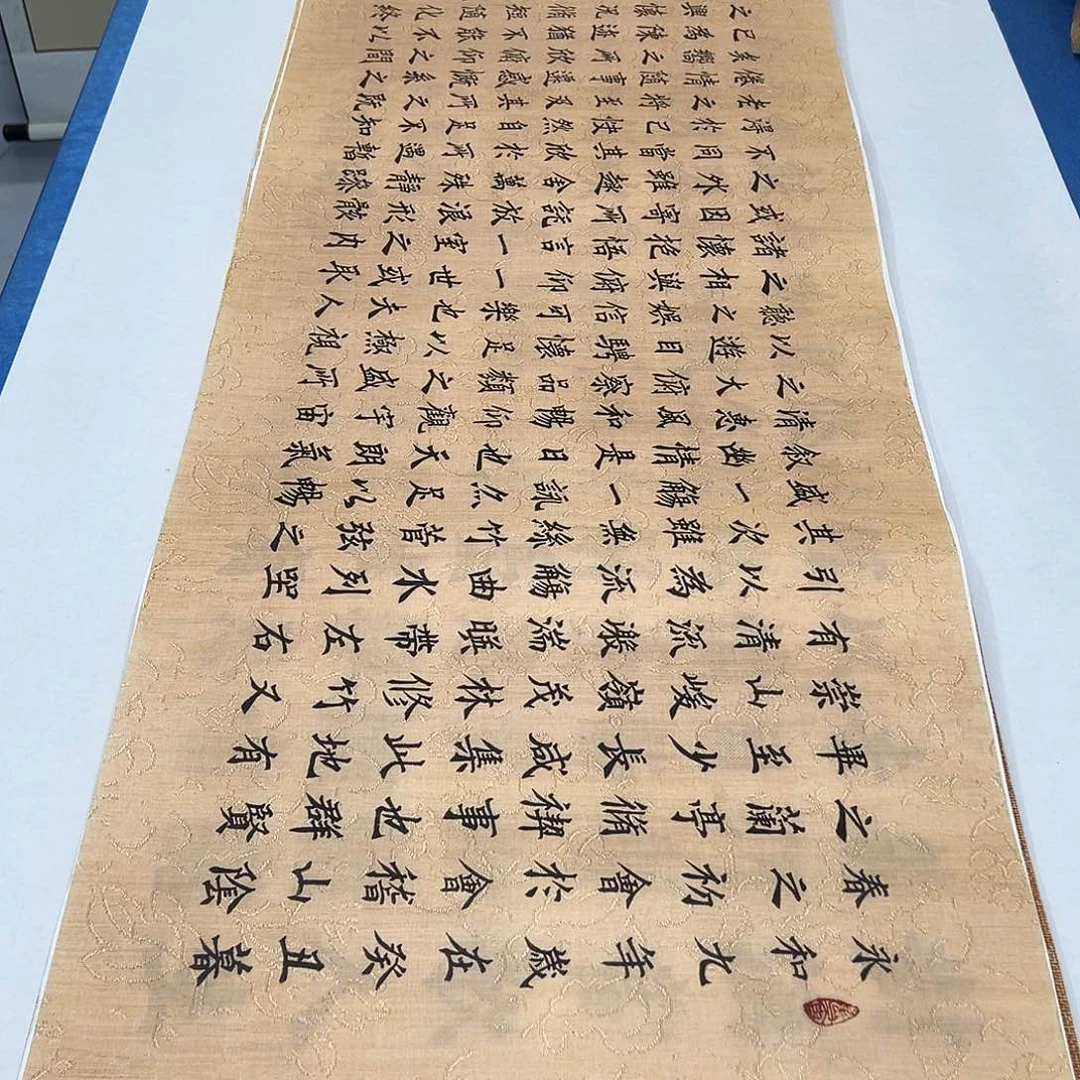 永和九年歲在癸丑暮
春之初會於會稽山陰
之蘭亭脩禊事也群賢
畢至少長咸集此地有
崇山峻嶺茂林修竹又
有清流激湍暎帶左右
引以為流觴曲水列坐
其次雖無絲竹管弦之
盛一觴一詠亦足以暢
叙幽情是日也天朗氣
清惠風和暢仰觀宇宙
之大俯察品類之盛所
以遊目騁懷足以極視
聽之娛信可樂也夫人
之相與俯仰一世或取
諸懷抱悟言一室之內
或因寄所託放浪形骸
之外雖趣舍萬殊靜躁
不同當其欣於所遇暫
得於己快然自足不知
老之將至及其所之既
倦情隨事遷感慨係之
矣嚮之所欣俯仰之間
已為陳迹猶不能不以
之興懷况脩短隨化終